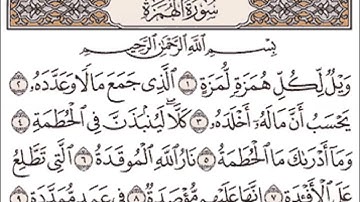 سُورَةُ الهُمَزَةِ
بِسْمِ اللَّهِ الرَّحْمَٰنِ الرَّحِيمِ
وَيْلٌ لِّكُلِّ هُمَزَةٍ لُّمَزَةٍ ١ الَّذِي جَمَعَ مَالًا وَعَدَّدَهُۥ ٢
يَحْسَبُ أَنَّ مَالَهُۥٓ أَخْلَدَهُۥ ٣ كَلَّا ۖ لَيُنۢبَذَنَّ فِي الْحُطَمَةِ ٤
وَمَآ أَدْرَىٰكَ مَا الْحُطَمَةُ ٥ نَارُ اللَّهِ الْمُوقَدَةُ ٦ الَّتِي تَطَّلِعُ
عَلَى الْأَفْـِٔدَةِ ٧ إِنَّهَا عَلَيْهِم مُّؤْصَدَةٌ ٨ فِي عَمَدٍ مُّمَدَّدَةٍۭ ٩